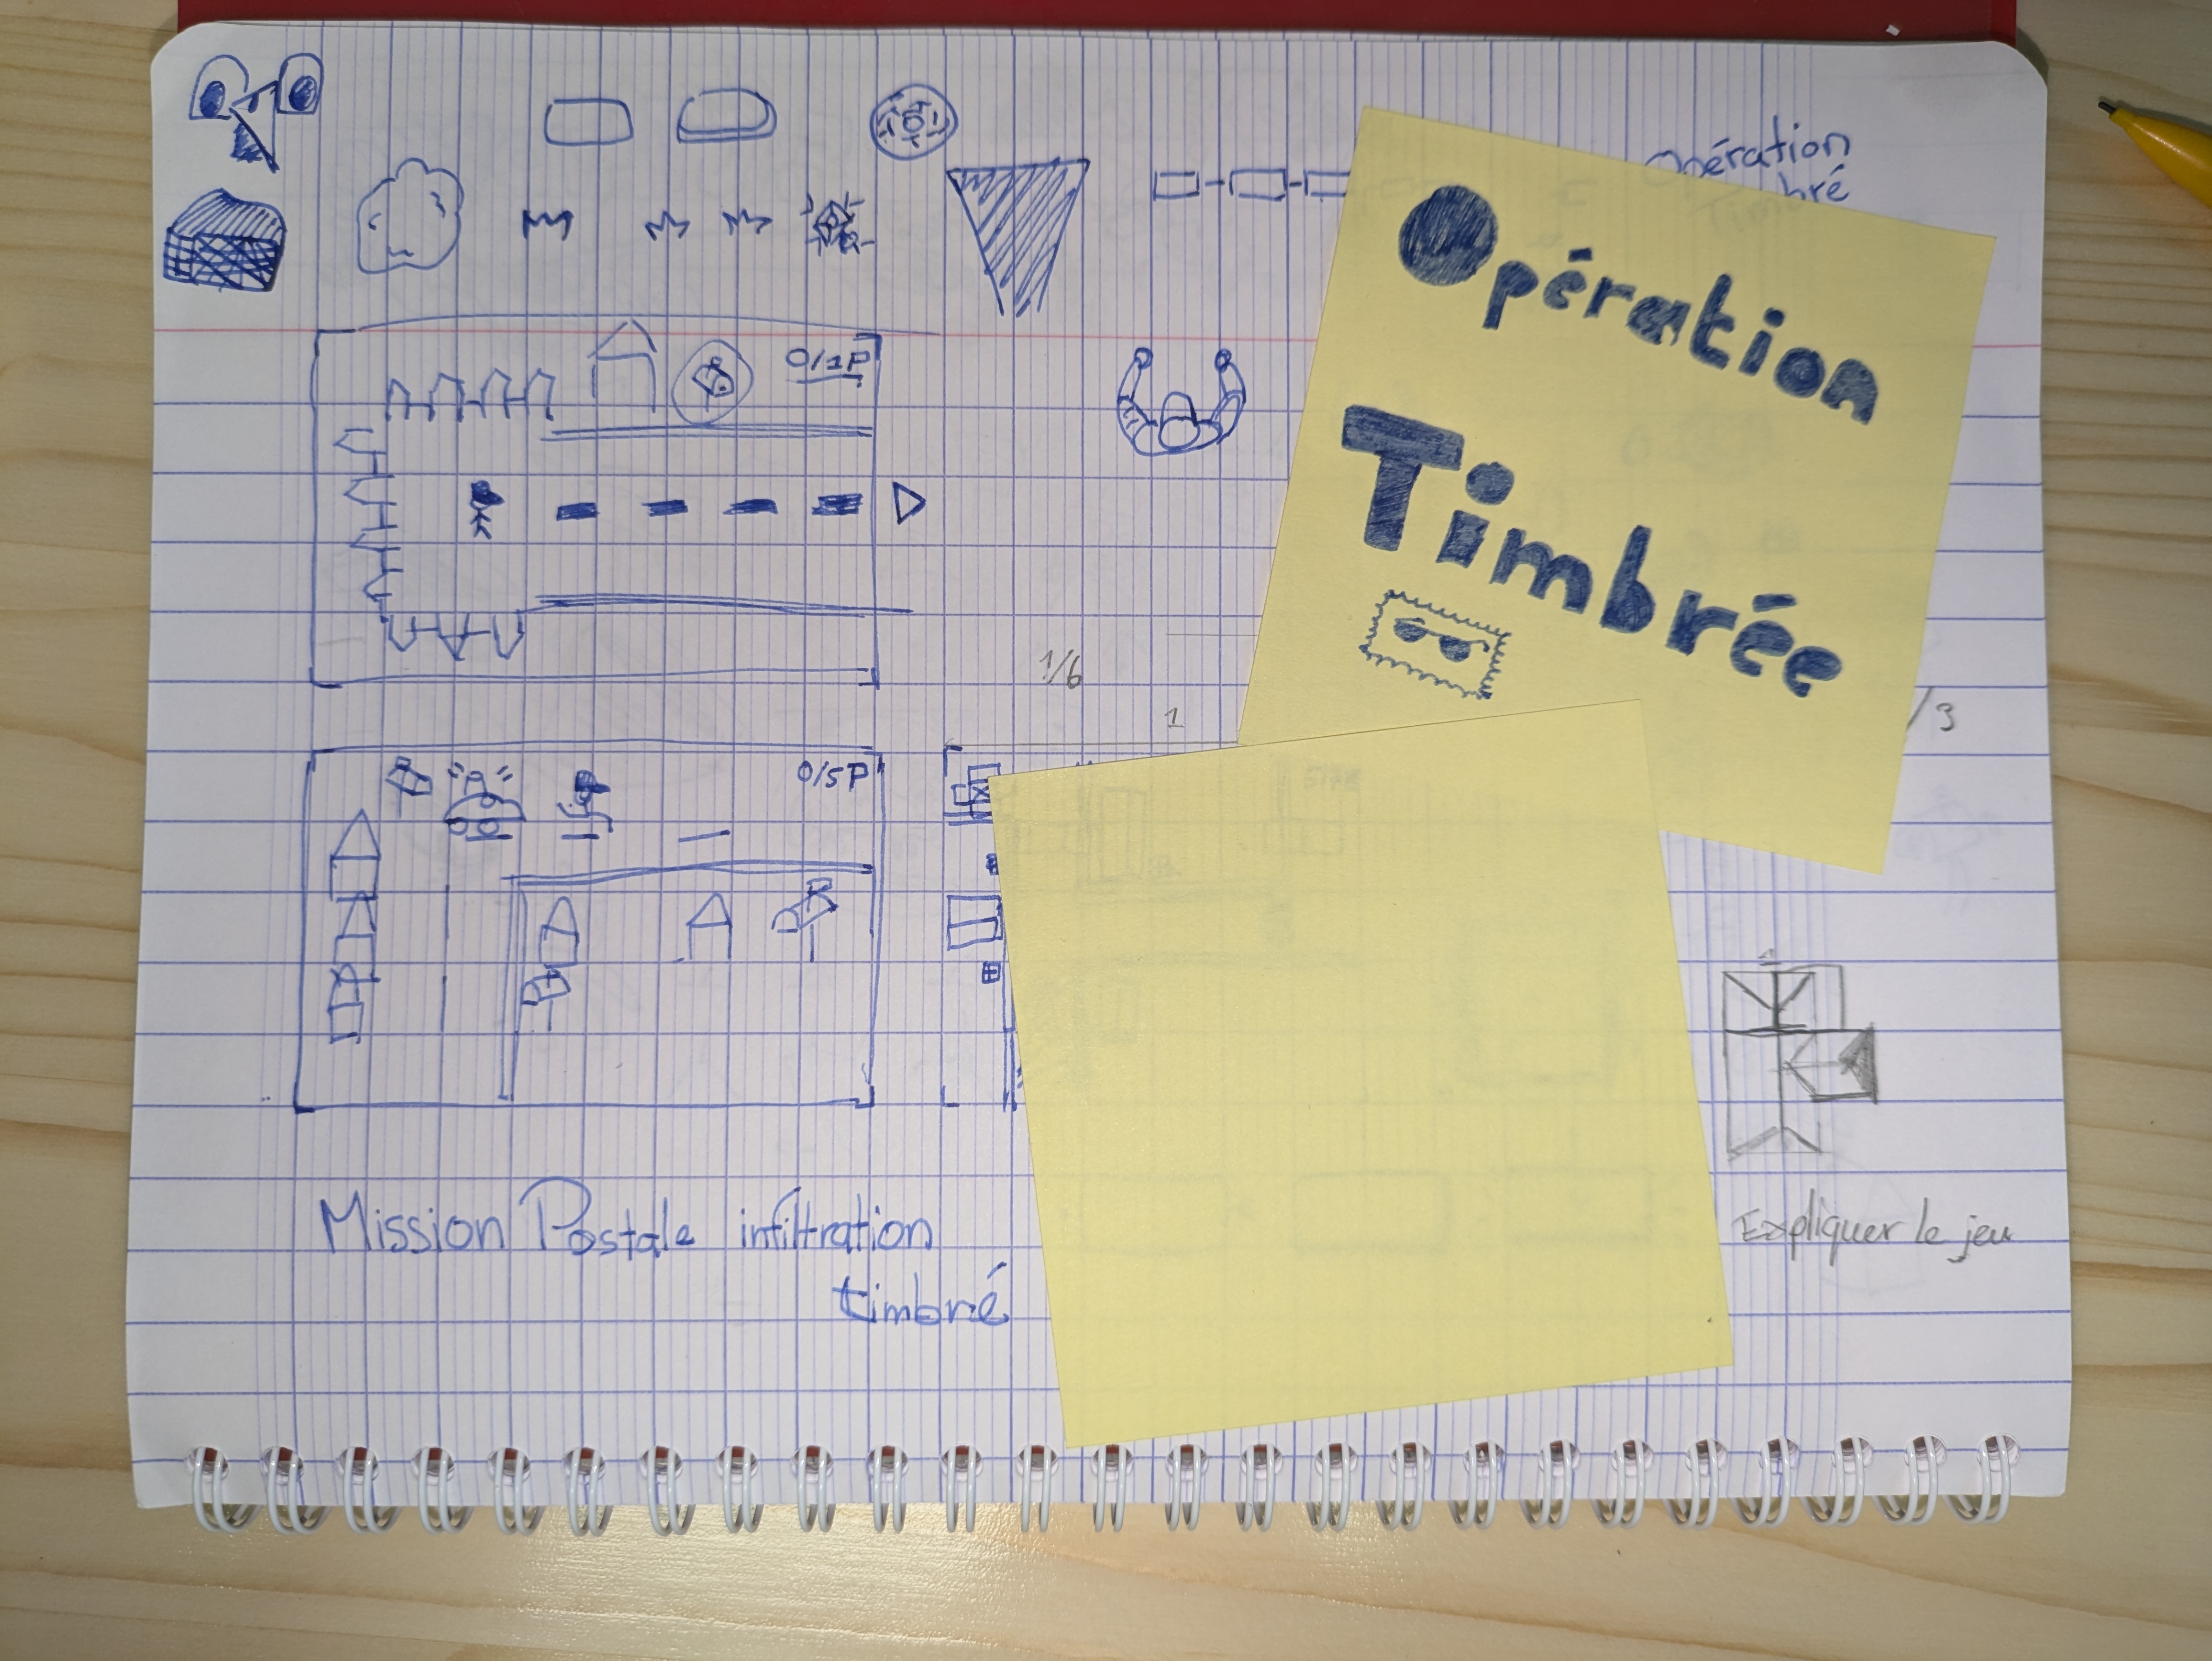 Opération
bré
Opération
Timbrée
0/1P
1/6
1
/3
0/5P
Mission Postale infiltration
timbré
Expliquer le jeu